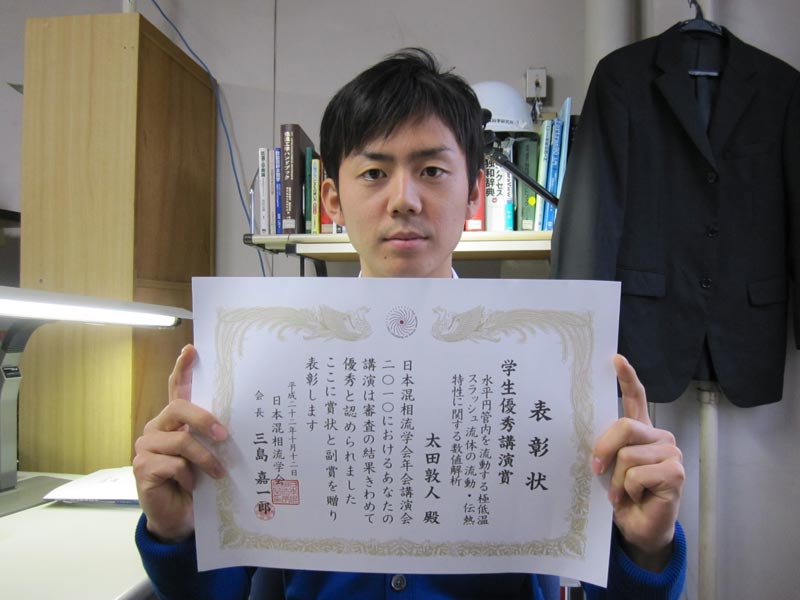 表彰状
学生優秀講演賞
水平円管内を流動する極低温
スラッシュ流体の流動・伝熱
特性に関する数値解析
太田敦人 殿
日本混相流学会年会講演会
二〇一〇におけるあなたの
講演は審査の結果きわめて
優秀と認められました
ここに賞状と副賞を贈り
表彰します
平成二十二年十月十二日
日本混相流学会
会長 三島 嘉一郎
独和辞典